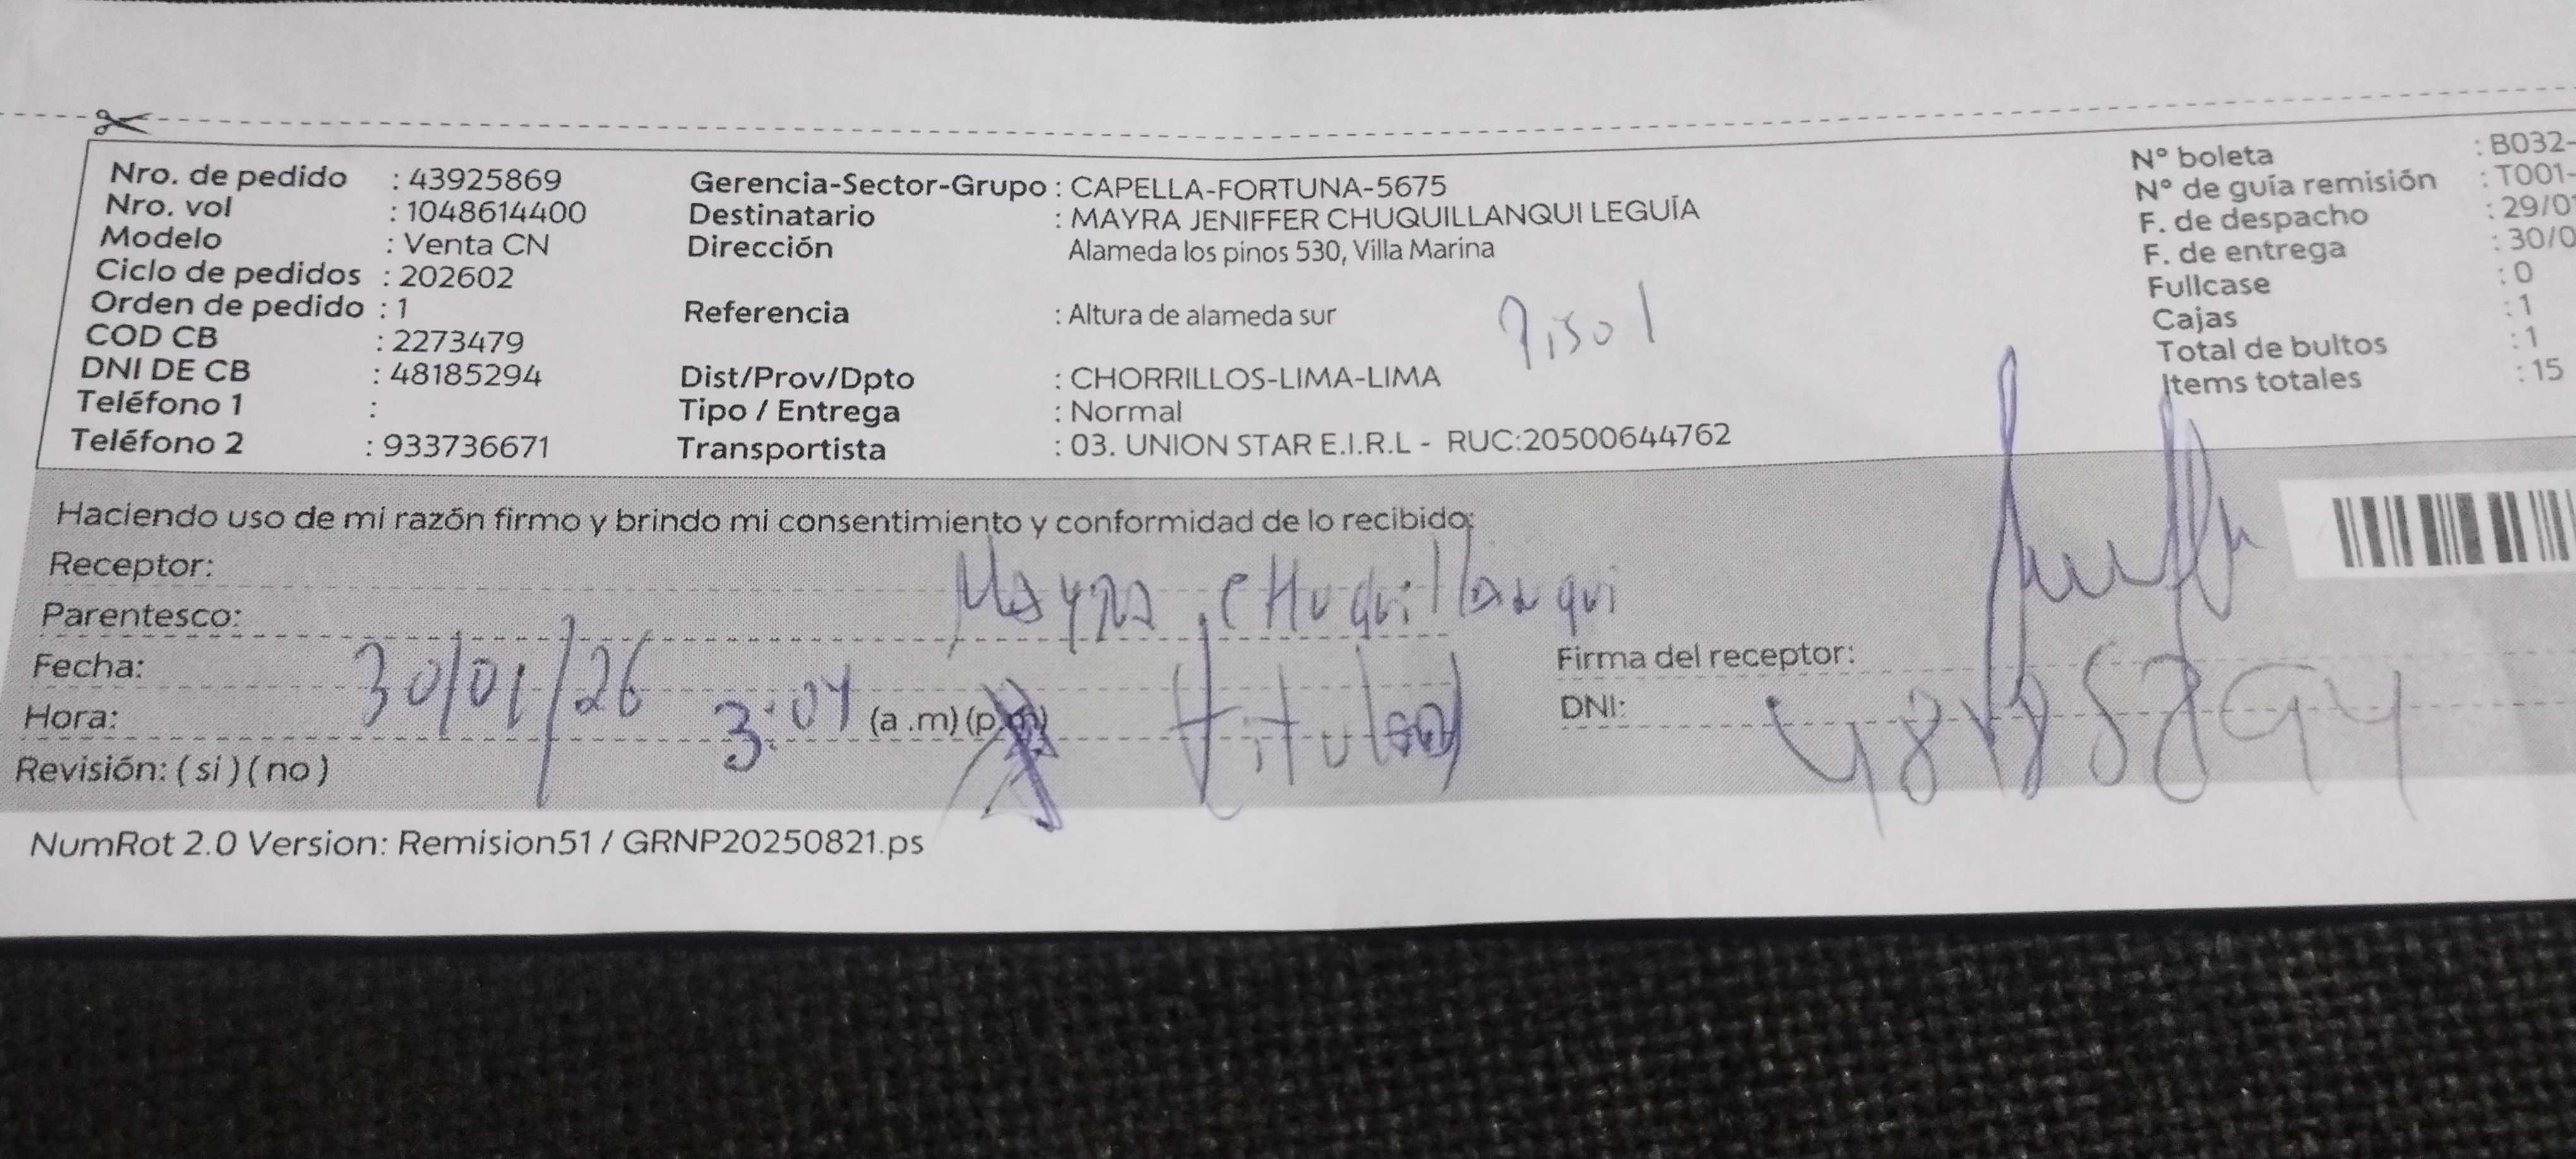 Nro. de pedido : 43925869
Nro. vol : 1048614400
Modelo : Venta CN
Ciclo de pedidos : 202602
Orden de pedido : 1
COD CB : 2273479
DNI DE CB : 48185294
Teléfono 1 :
Teléfono 2 : 933736671
Gerencia-Sector-Grupo : CAPELLA-FORTUNA-5675
Destinatario : MAYRA JENIFFER CHUQUILLANQUI LEGUÍA
Dirección Alameda los pinos 530, Villa Marina
Referencia : Altura de alameda sur
Piso 1
Dist/Prov/Dpto : CHORRILLOS-LIMA-LIMA
Tipo / Entrega : Normal
Transportista : 03. UNION STAR E.I.R.L - RUC:20500644762
N° boleta : B032-
N° de guía remisión : T001-
F. de despacho : 29/0
F. de entrega : 30/0
Fullcase : 0
Cajas : 1
Total de bultos : 1
Items totales : 15
Haciendo uso de mi razón firmo y brindo mi consentimiento y conformidad de lo recibido:
Receptor: Mayra CHuquillanqui
Parentesco: titular
Fecha: 30/01/26
Hora: 3:04 (a .m) (p.m)
Revisión: ( si ) ( no )
Firma del receptor:
DNI:
NumRot 2.0 Version: Remision51 / GRNP20250821.ps